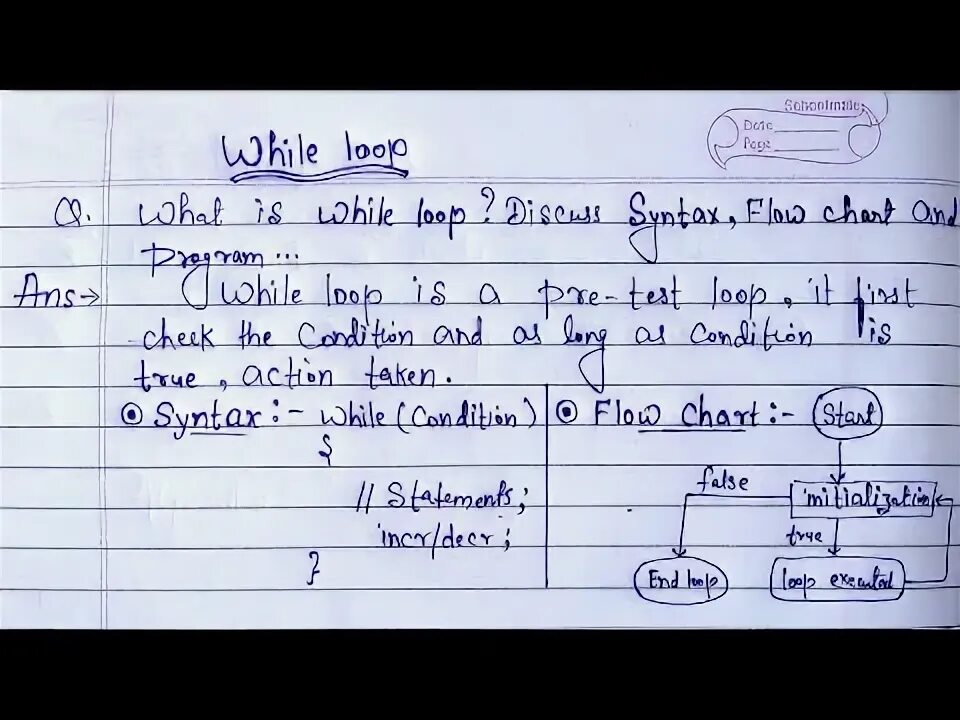 Schoolmate
Date
Page
While loop
Q. What is while loop? Discuss Syntax, Flow chart and
program...
Ans→ While loop is a pre-test loop, it first
check the Condition and as long as condition is
true, action taken.
Syntax:- while (Condition)
{
// Statements;
incr/decr;
}
Flow Chart:- Start
false
initialization
true
End loop
loop executed